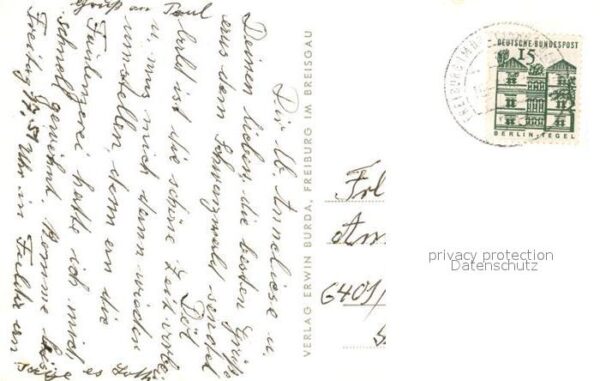 Dir lb. Anneliese u.
Deinen lieben, die besten Grüße
aus dem Schwarzwald sendet
Dol
bald ist die schöne Zeit vorbei
u. muss mich dann wieder
umstellen, denn an die
Faulenzerei hatte ich mich
schnell gewöhnt. Komme
Freitag 17.51 Uhr in Fulda an
sage es
Gruß an Paul
VERLAG ERWIN BURDA, FREIBURG IM BREISGAU
FREIBURG IM
DEUTSCHE BUNDESPOST
15
BERLIN-TEGEL
Frl
6401
privacy protection
Datenschutz